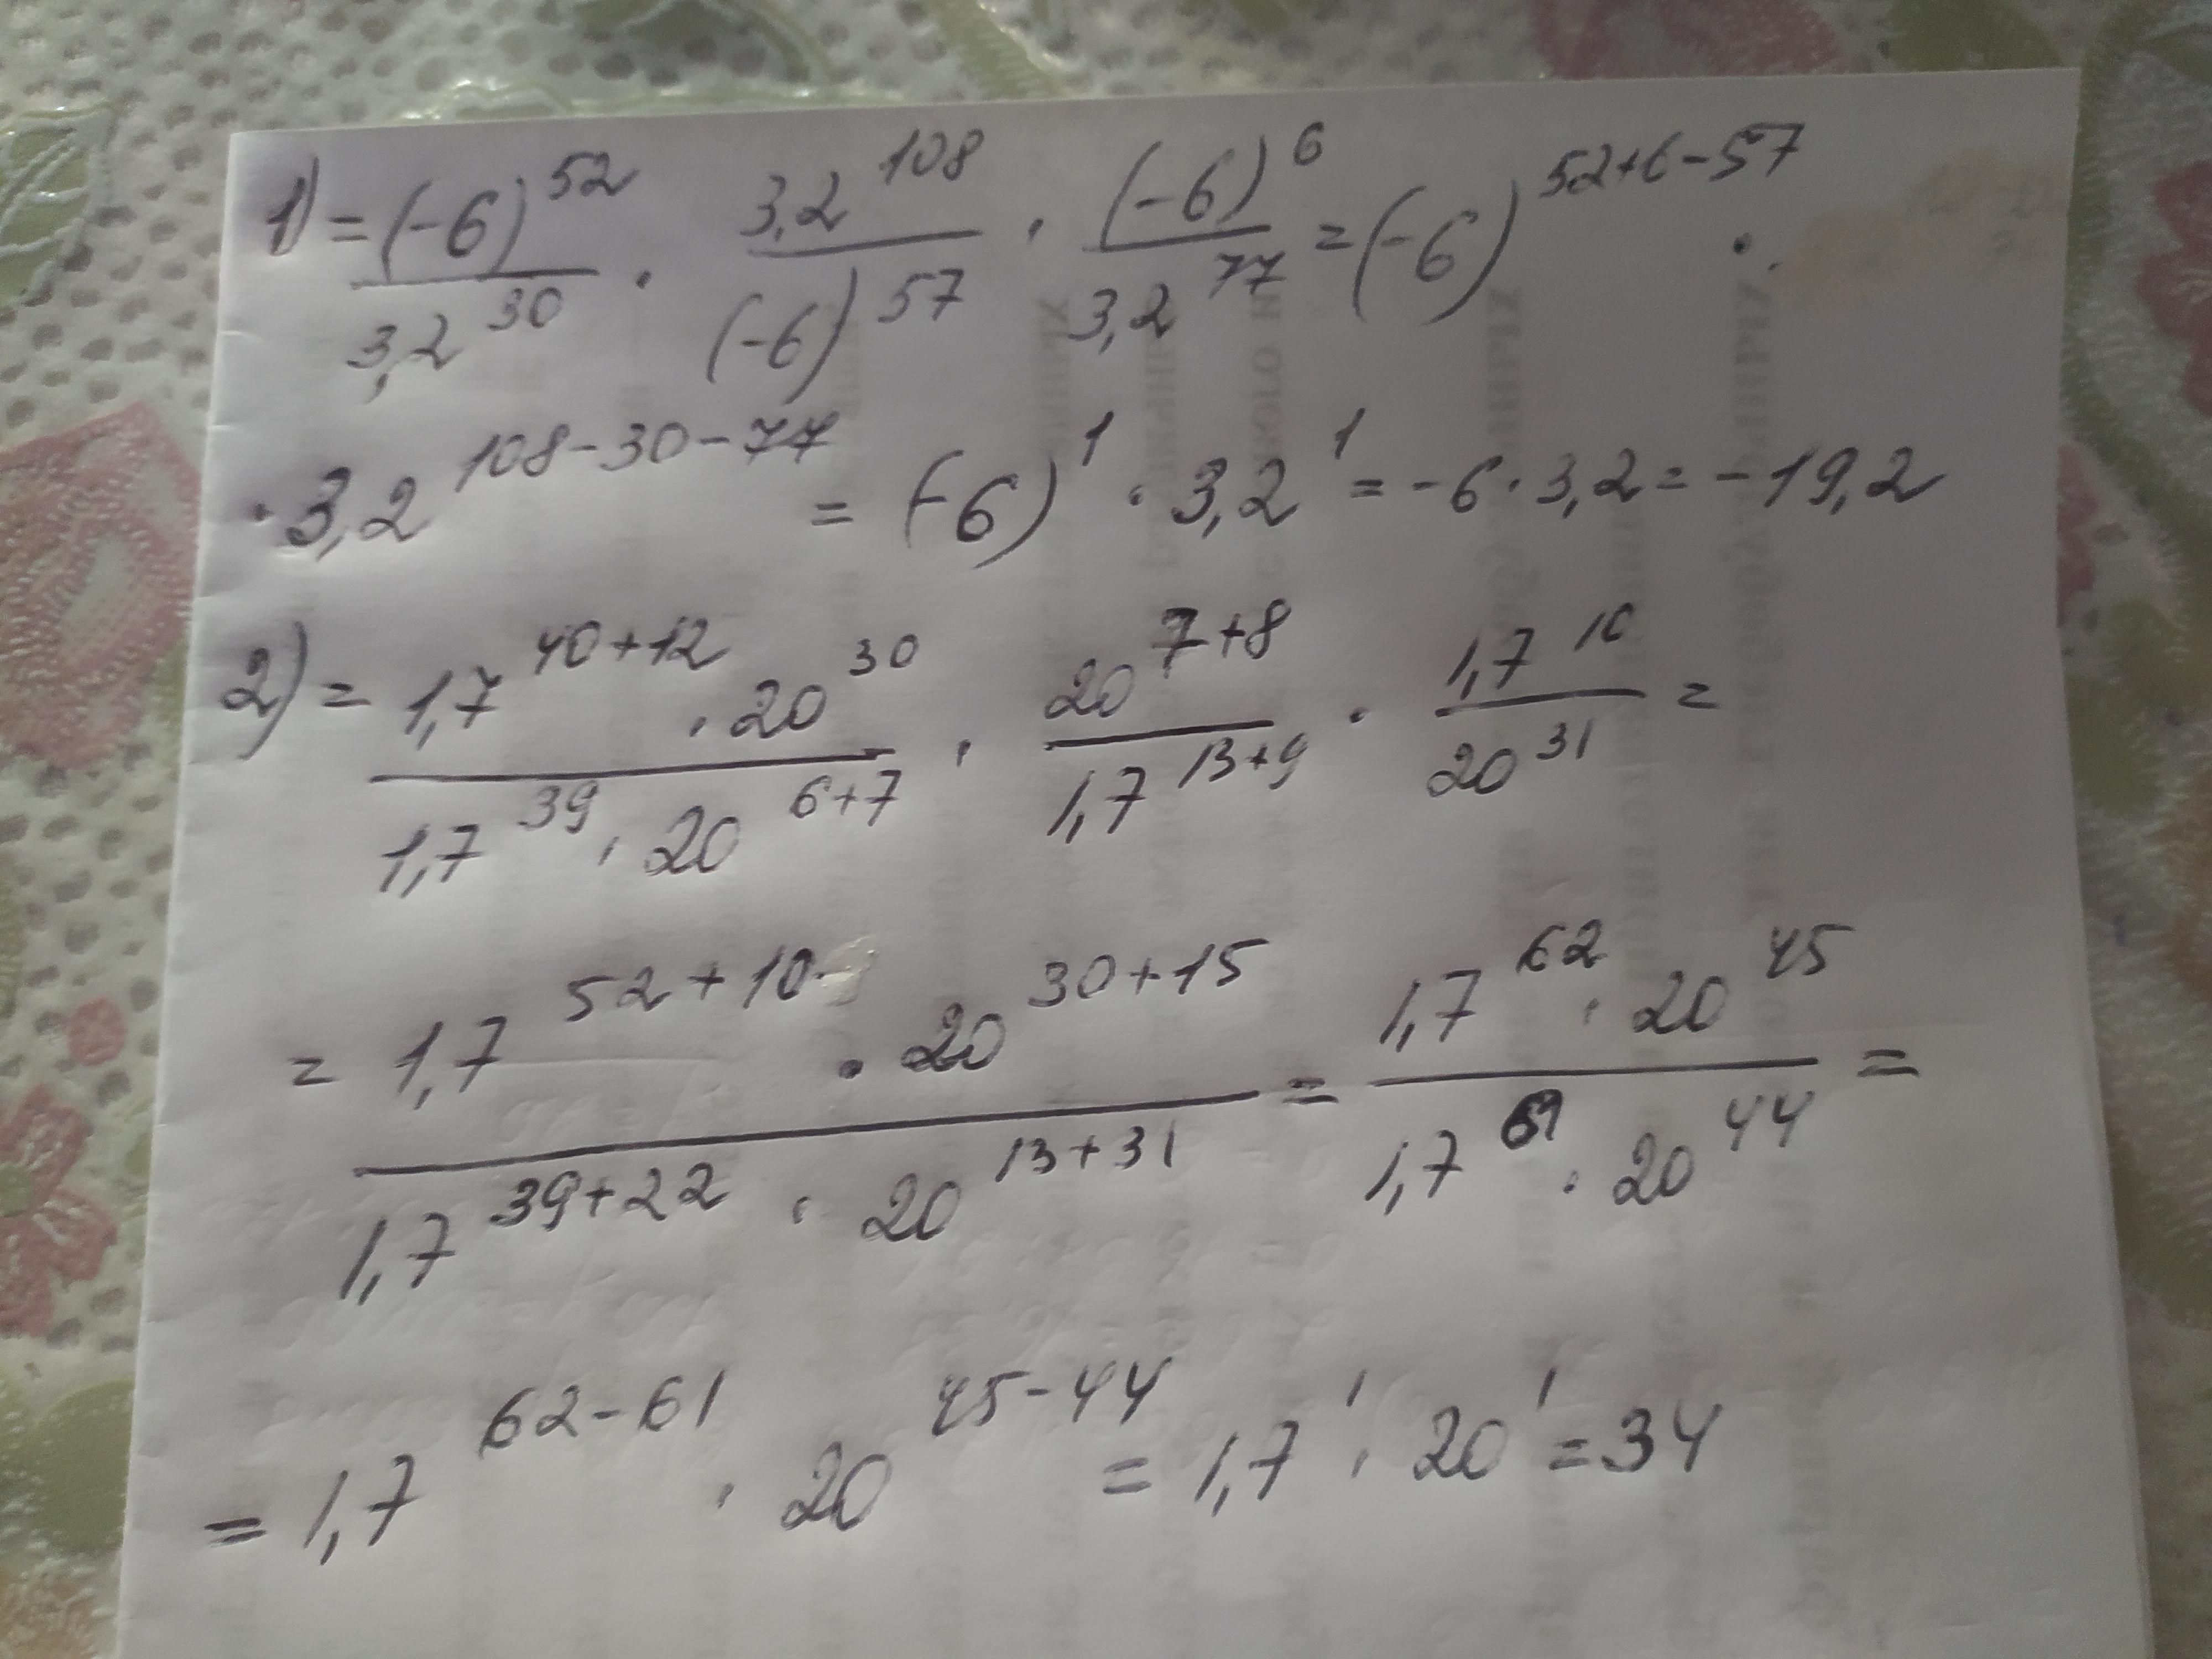 1) = (-6)^52 / 3,2^30 · 3,2^108 / (-6)^57 · (-6)^6 / 3,2^77 = (-6)^52+6-57 ·
· 3,2^108-30-77 = (-6)^1 · 3,2^1 = -6 · 3,2 = -19,2
2) = 1,7^40+12 · 20^30 / 1,7^39 · 20^6+7 · 20^7+8 / 1,7^13+9 · 1,7^10 / 20^31 =
= 1,7^52+10 · 20^30+15 / 1,7^39+22 · 20^13+31 = 1,7^62 · 20^45 / 1,7^61 · 20^44 =
= 1,7^62-61 · 20^45-44 = 1,7^1 · 20^1 = 34